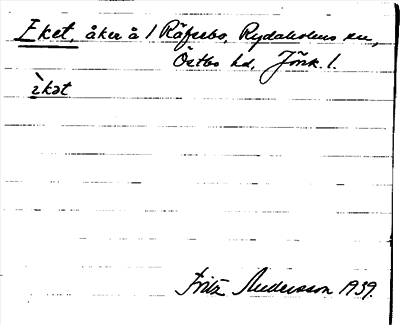 Eket, åker å 1 Räferbo, Rydaholms sn,
Östbo hd, Jönk. l.
ìkət
Fritz Andersson 1939.